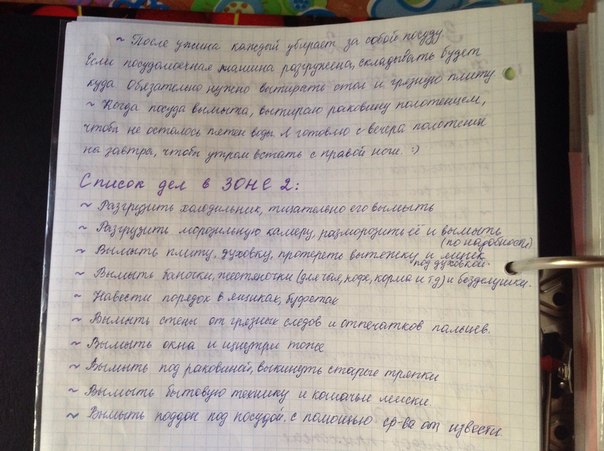 ~ После ужина каждый убирает за собой посуду.
Если посудомоечная машина разгружена, складывать будет
куда. Обязательно нужно вытирать стол и грязную плиту
~ Когда посуда вымыта, вытираю раковину полотенцем,
чтобы не осталось пятен воды. А готовлю с вечера полотенчик
на завтра, чтобы утром встать с правой ноги. :)
Список дел в ЗОНЕ 2:
~ Разгрузить холодильник, тщательно его вымыть
~ Разгрузить морозильную камеру, разморозить её и вымыть
(по надобности)
~ Вымыть плиту, духовку, протереть вытяжку и ящик
под духовкой.
~ Вымыть баночки, жестяночки (для чая, кофе, корма и тд) и безделушки.
~ Навести порядок в ящиках, буфетах
~ Вымыть стены от грязных следов и отпечатков пальцев.
~ Вымыть окна и изнутри тоже
~ Вымыть под раковиной, выкинуть старые тряпки
~ Вымыть бытовую технику и кошачьи миски.
~ Вымыть поддон под посудой, с помощью ср-ва от извести.